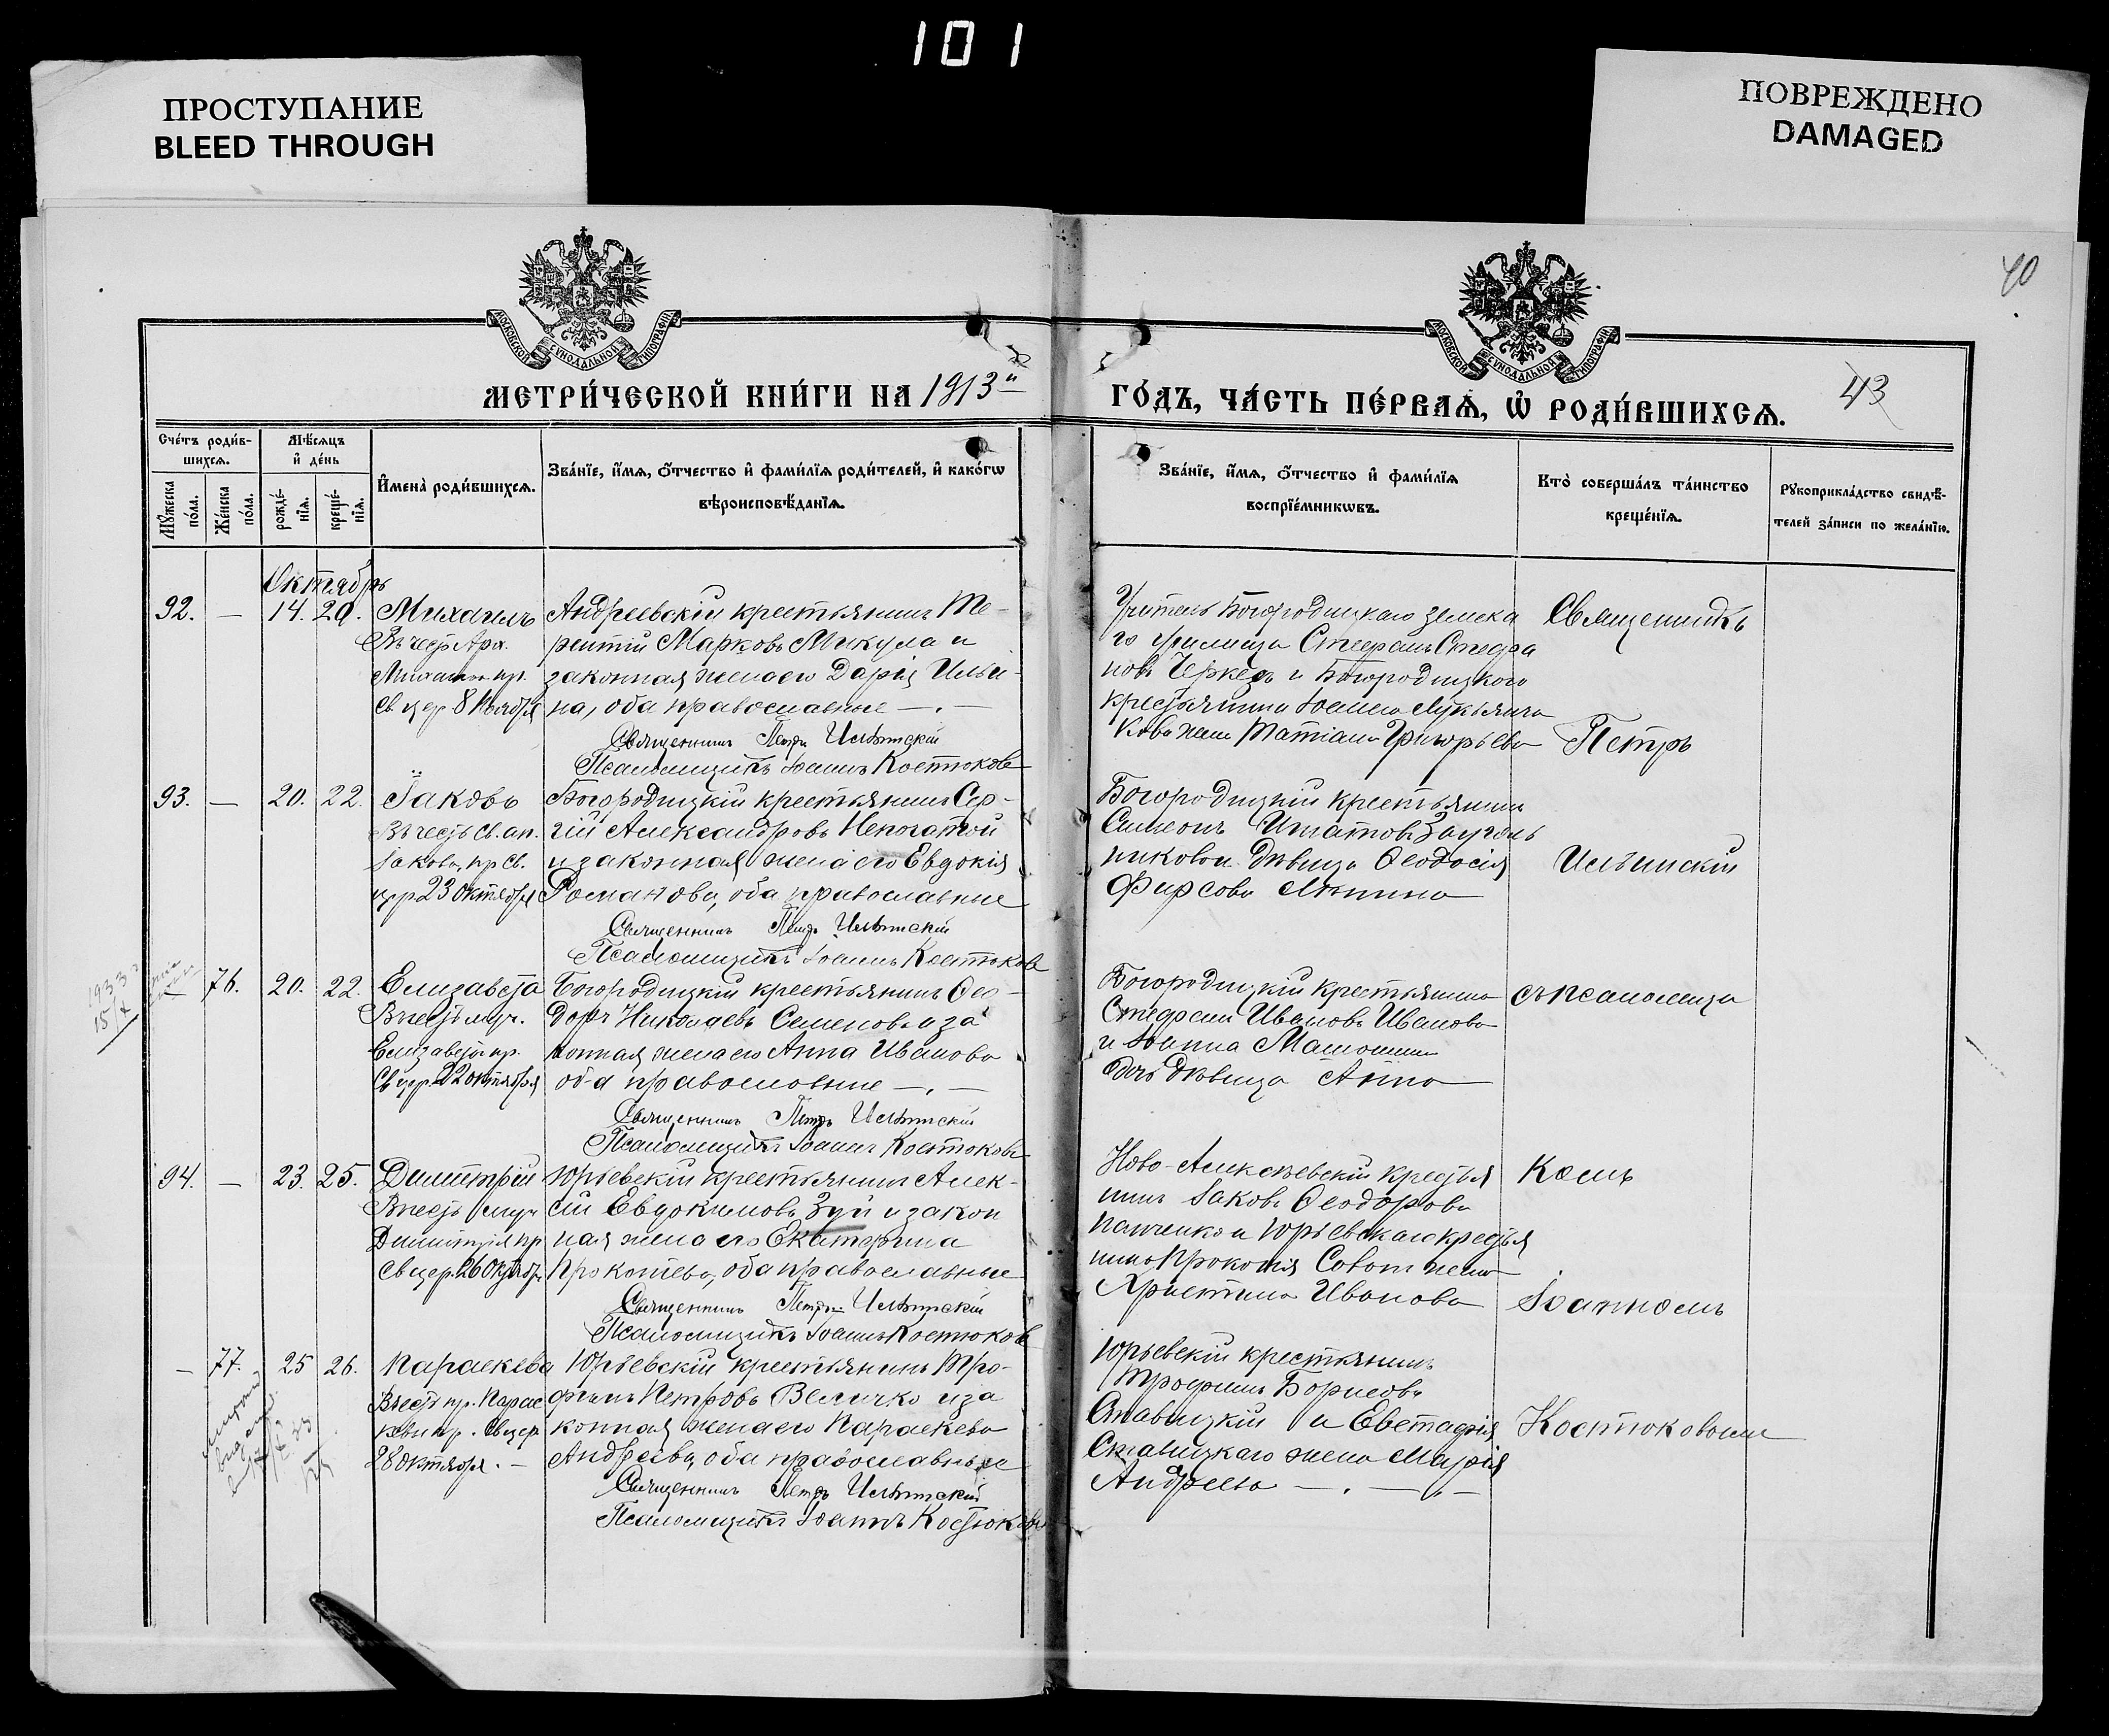 101
ПРОСТУПАНИЕ
BLEED THROUGH
ПОВРЕЖДЕНО
DAMAGED
40
МОСКОВСКОЙ СѴНОДАЛЬНОЙ ТИПОГРАФІИ
МОСКОВСКОЙ СѴНОДАЛЬНОЙ ТИПОГРАФІИ
МЕТРИ́ЧЕСКОЙ КНИ́ГИ НА 1913й
ГО́ДЪ, ЧА́СТЬ ПЕ́РВАѦ, Ѡ҆ РОДИ́ВШИХСѦ.
43
Сче́тъ роди́в-
шихсѧ.
Мѣ́сѧцъ
и҆ де́нь
Мꙋ́жеска
по́ла.
Же́нска
по́ла.
рожде́-
нїѧ.
креще́-
нїѧ.
И҆мена̀ роди́вшихсѧ.
Зва́нїе, и҆́мѧ, ѻ҆́тчество и҆ фами́лїѧ роди́телей, и҆ како́гѡ
вѣроисповѣ́данїѧ.
Зва́нїе, и҆́мѧ, ѻ҆́тчество и҆ фами́лїѧ
воспрїе́мникѡвъ.
Кто̀ соверша́лъ та́инство
креще́нїѧ.
Рꙋкоприкла́дство свидѣ́-
телей за́писи по жела́нїю.
Октябрь
92. — 14. 20. Михаилъ
Въ честь Арх.
Михаила пр.
Св цер 8 Ноября
Андреевскій крестьянинъ Те-
рентій Марковъ Микула и
законная жена его Дарія Ильи-
на, оба православные —.—
Священникъ Петръ Ильинскій
Псаломщикъ Іоаннъ Костюковъ
Учитель Богородицкаго земска
го училища Стефанъ Стефа
новъ Черкезъ и Богородицкаго
крестьянина Іоанна Лукьянча
кова жена Татіана Григорьева
Священникъ
Петръ
93. — 20. 22. Іаковъ
Въ честь Св. ап.
Іакова, пр Св.
цер 23 Октября
Богородицкій крестьянинъ Сер-
гій Александровъ Непочатой
и законная жена его Евдокія
Романова, оба православные
Священникъ Петръ Ильинскій
Псаломщикъ Іоаннъ Костюковъ
Богородицкій крестьянинъ
Симеонъ Игнатовъ
дѣвица Ѳеодосія
Фирсова
Ильинскій
1933
15/X
— 76. 20. 22. Елизавета
Въ честь муч.
Елизаветы пр.
Св цер. 22 октября
Богородицкій крестьянинъ Ѳео-
доръ Николаевъ Семеновъ и за
конная жена его Анна Иванова
оба православные —.—
Священникъ Петръ Ильинскій
Псаломщикъ Іоаннъ Костюковъ
Богородицкій крестьянинъ
Стефанъ Ивановъ Иванова
и Іоанна
дочь дѣвица Анна
съ псаломщи
94. — 23. 25. Димитрій
Въ честь муч
Димитрія пр
Св цер. 26 Октябр.
Юрьевскій крестьянинъ Алек-
сій Евдокимовъ Зуй и закон
ная жена его Екатерина
Прокопіева, оба православные
Священникъ Петръ Ильинскій
Псаломщикъ Іоаннъ Костюковъ
Ново-Алексѣевскій крестья
нинъ Іаковъ Ѳеодоровъ
Панченко и Юрьевскаго крестья
нина Прокопія жена
Христина Иванова
комъ
Іоанномъ
— 77. 25 26. Параскева
Въ честь пр. Парас
кевы пр. Св цер
28 октября. —
Юрьевскій крестьянинъ Тро-
фимъ Петровъ Величко и за
конная жена его Параскева
Андреева, оба православные
Священникъ Петръ Ильинскій
Псаломщикъ Іоаннъ Костюковъ
Юрьевскій крестьянинъ
Трофимъ Борисовъ
Ставицкій и Евстафія
Ставицкаго жена Марія
Андреева —.—.—
Костюковымъ